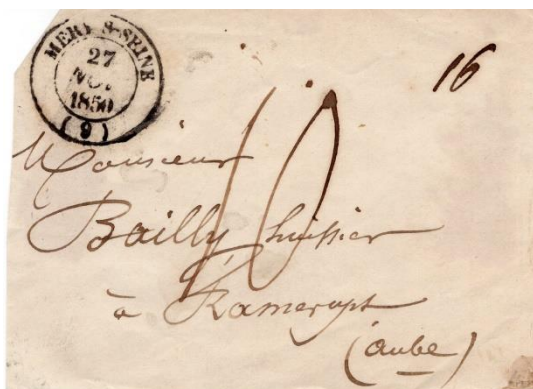 MERY-S-SEINE
27
NOV.
1850
(9)
16
10
Monsieur
Bailly huissier
à Ramerupt
(aube)